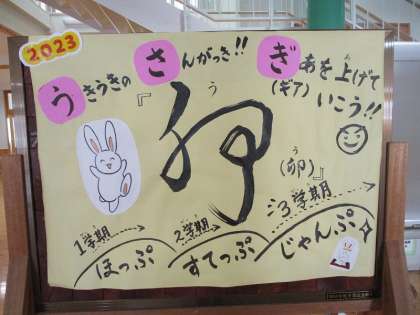 2023
うきうきの
さんがっき!!
ぎあを上げて
(ギア)
いこう!!
『卯
う
(卯)』
う
1学期
ほっぷ
2学期
すてっぷ
3学期
じゃんぷ